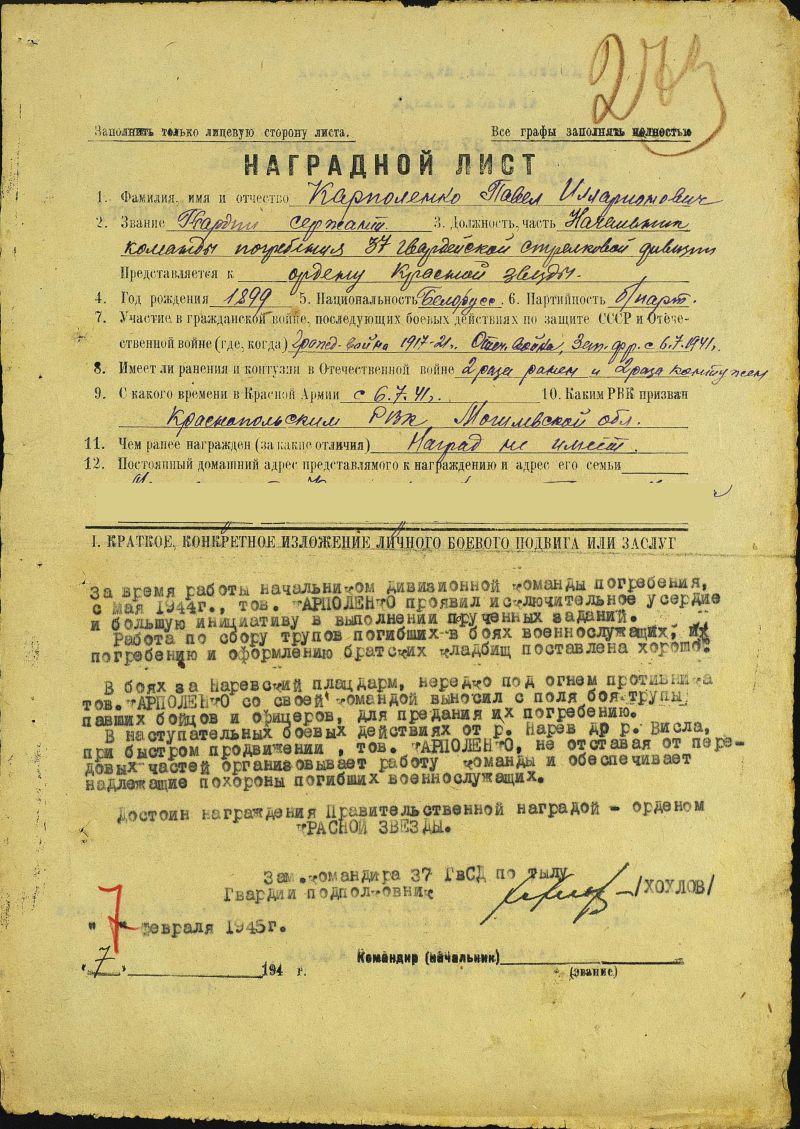 273
Заполнить только лицевую сторону листа. Все графы заполнять полностью
НАГРАДНОЙ ЛИСТ
1. Фамилия, имя и отчество Карполенко Павел Илларионович
2. Звание Гвардии сержант. 3. Должность, часть Начальник
команды погребения 37 гвардейской стрелковой дивизии
Представляется к ордену Красной звезды.
4. Год рождения 1899 5. Национальность Белорусс. 6. Партийность б/парт.
7. Участие в гражданской войне, последующих боевых действиях по защите СССР и Отече-
ственной войне (где, когда) война 1917-21г. Отеч. война, Зап. фр. с 6.7.1941г.
8. Имеет ли ранения и контузии в Отечественной войне 2 раза ранен и 2 раза контужен
9. С какого времени в Красной Армии с 6.7.41г. 10. Каким РВК призван
Краснопольским РВК, Могилевской обл.
11. Чем ранее награжден (за какие отличия) Наград не имеет.
12. Постоянный домашний адрес представлямого к награждению и адрес его семьи
I. КРАТКОЕ, КОНКРЕТНОЕ ИЗЛОЖЕНИЕ ЛИЧНОГО БОЕВОГО ПОДВИГА ИЛИ ЗАСЛУГ
За время работы начальником дивизионной команды погребения,
с мая 1944г., тов. КАРПОЛЕНКО проявил исключительное усердие
и большую инициативу в выполнении прученных заданий.
Работа по сбору трупов погибших в боях военнослужащих, их
погребению и оформлению братских кладбищ поставлена хорошо.
В боях за Наревский плацдарм, нередко под огнем противника
тов. КАРПОЛЕНКО со своей командой выносил с поля боя трупы
павших бойцов и офицеров, для предания их погребению.
В наступательных боевых действиях от р. Нарев др р. Висла,
при быстром продвижении , тов. КАРПОЛЕНКО, не отставая от пере-
довых частей организовывает работу команды и обеспечивает
надлежащие похороны погибших военнослужащих.
Достоин награждения Правительственной наградой - орденом
КРАСНОЙ ЗВЕЗДЫ.
Зам.командира 37 ГвСД по тылу
Гвардии подполковник /ХОХЛОВ/
" 7 " февраля 1945г.
Командир (начальник)
" 7 " 194 г. (звание)